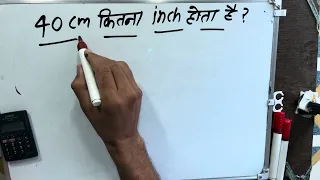 40 cm कितना inch होता है ?